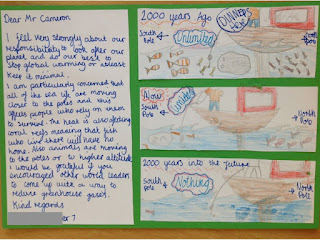 Dear Mr Cameron
I feel very strongly about our
responsibility to look after our
planet and do our best to
stop global warming or atleast
keep it minimal.
I am particularly concerned that
all of the sea life are moving
closer to the poles and this
affects people who rely on them
to survive. The heat is also affecting
coral reefs meaning that fish
who live there will have no
home. Also animals are moving
to the poles or to higher altitude.
I would be grateful if you
encouraged other world leaders
to come up with a way to
reduce greenhouse gases.
Kind regards
7
2000 years Ago
DINNERS
South
Pole
Unlimited
Pole
Now
South
Pole
Limited
North
Pole
2000 years into the future
South
Pole
Nothing
North
Pole